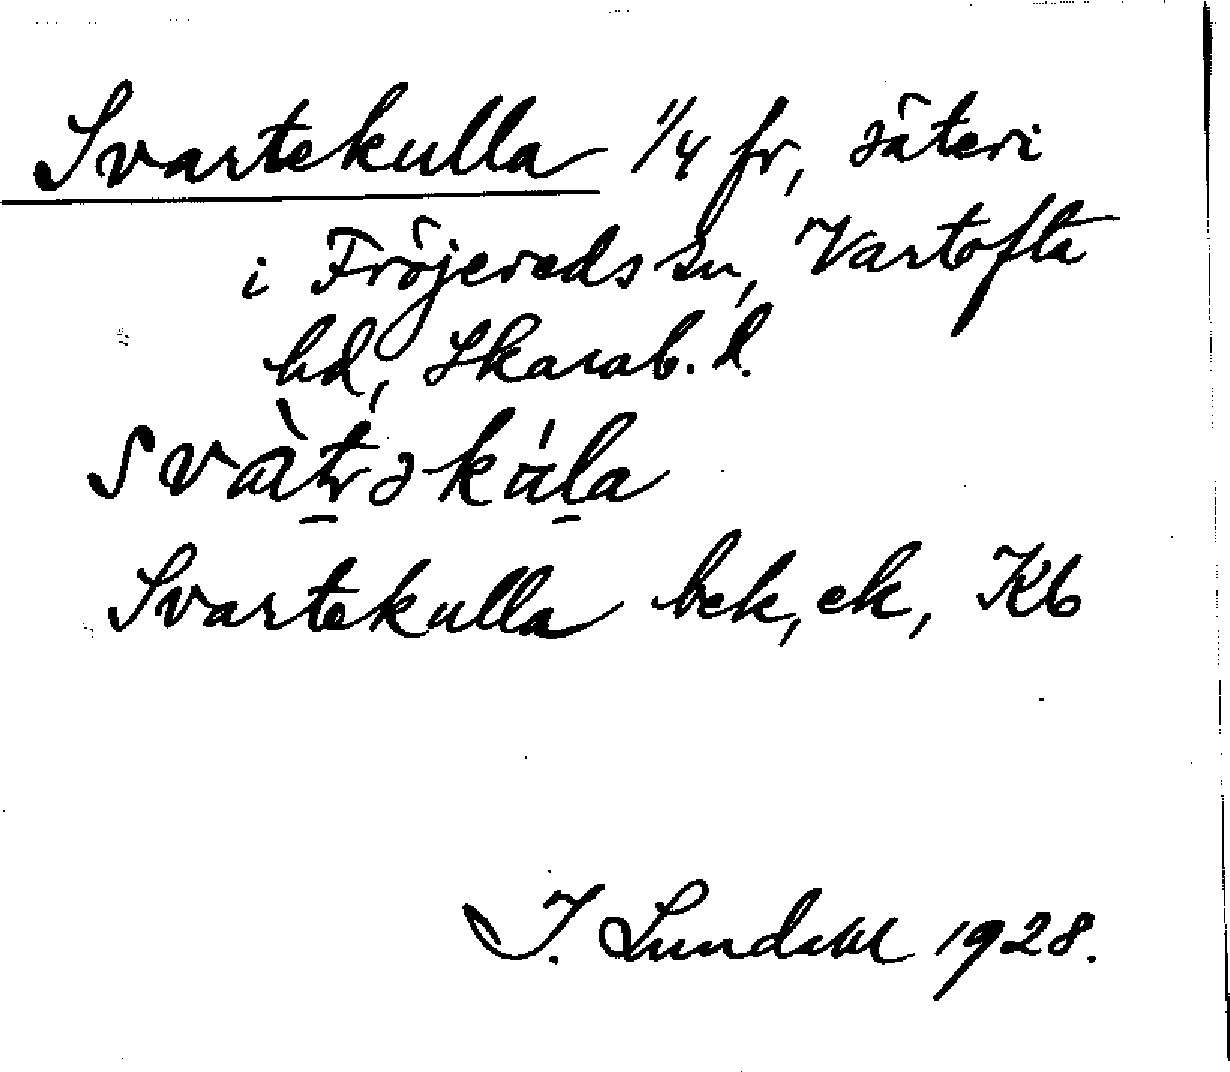 Svartekulla 1/4 fr, säteri
i Fröjereds sn, Vartofta
hd, Skarab. l.
svàt̠əkúl̠a
Svartekulla bek, ek, Kb
I. Lundahl 1928.